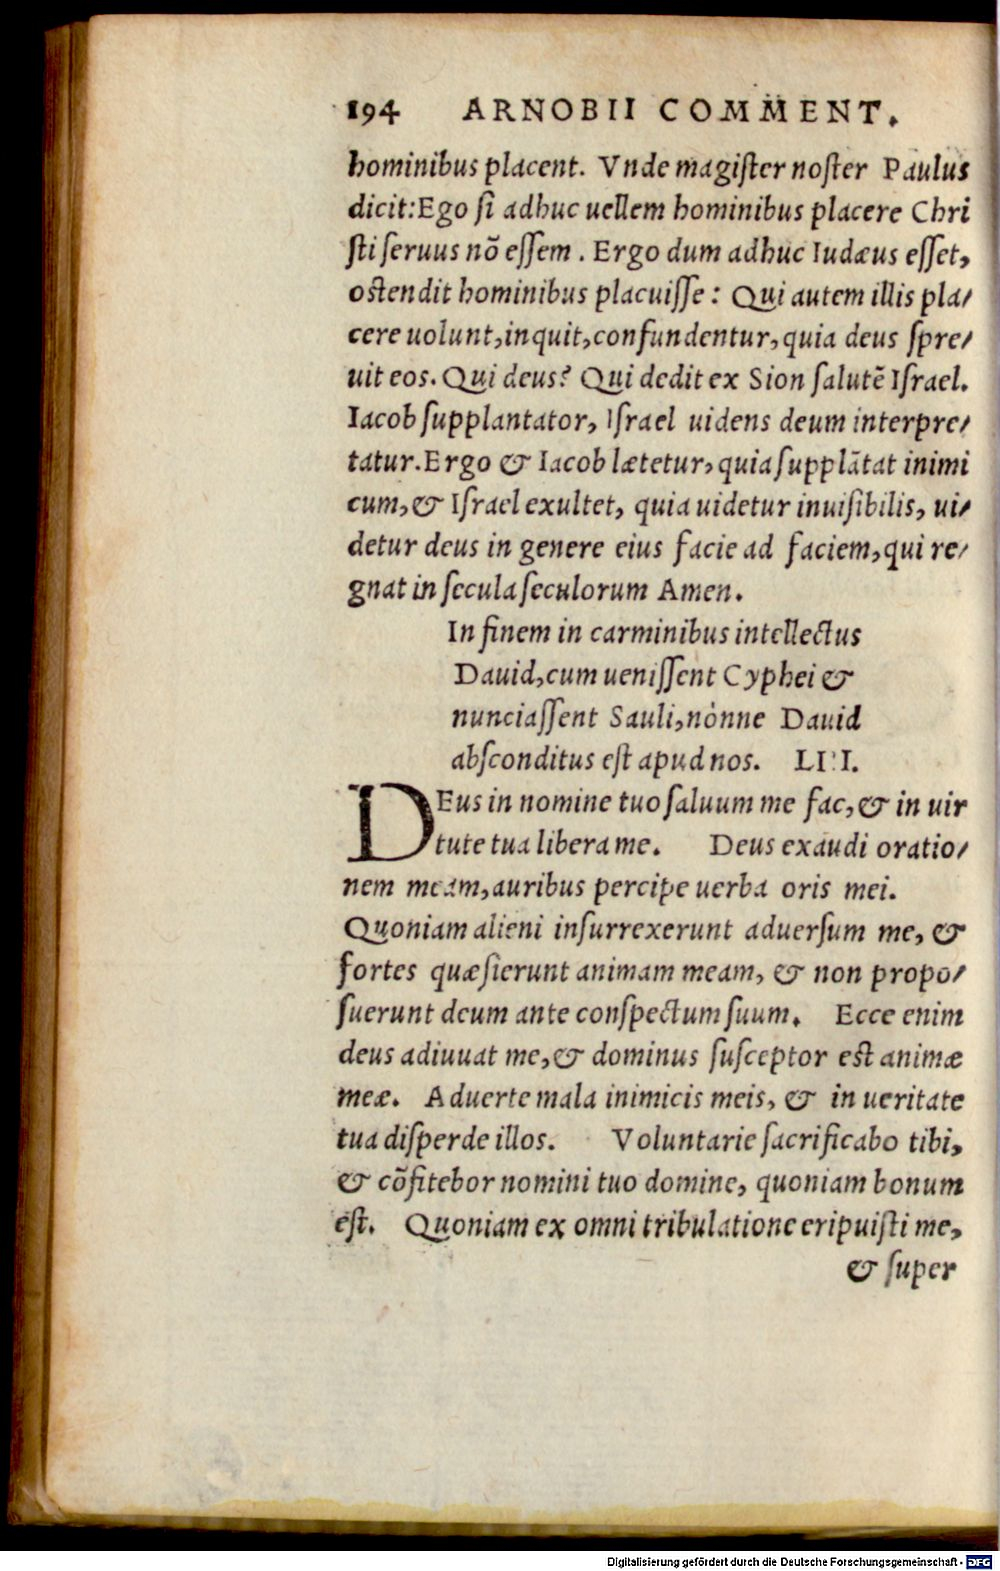 194 ARNOBII COMMENT.
hominibus placent. Vnde magiſter noſter Paulus
dicit: Ego ſi adhuc uellem hominibus placere Chri
ſti ſeruus nõ eſſem. Ergo dum adhuc Iudæus eſſet,
oſtendit hominibus placuiſſe: Qui autem illis pla/
cere uolunt, inquit, confundentur, quia deus ſpre/
uit eos. Qui deus? Qui dedit ex Sion ſalutẽ Iſrael.
Iacob ſupplantator, Iſrael uidens deum interpre/
tatur. Ergo & Iacob lætetur, quia ſupplãtat inimi
cum, & Iſrael exultet, quia uidetur inuiſibilis, ui/
detur deus in genere eius facie ad faciem, qui re/
gnat in ſecula ſeculorum Amen.
In finem in carminibus intellectus
Dauid, cum ueniſſent Cyphei &
nunciaſſent Sauli, nónne Dauid
abſconditus eſt apud nos. LIII.
DEus in nomine tuo ſaluum me fac, & in uir
tute tua libera me. Deus exaudi oratio/
nem meam, auribus percipe uerba oris mei.
Quoniam alieni inſurrexerunt aduerſum me, &
fortes quæſierunt animam meam, & non propo/
ſuerunt deum ante conſpectum ſuum. Ecce enim
deus adiuuat me, & dominus ſuſceptor eſt animæ
meæ. Aduerte mala inimicis meis, & in ueritate
tua diſperde illos. Voluntarie ſacrificabo tibi,
& cõfitebor nomini tuo domine, quoniam bonum
eſt. Quoniam ex omni tribulatione eripuiſti me,
& ſuper
Digitalisierung gefördert durch die Deutsche Forschungsgemeinschaft - DFG